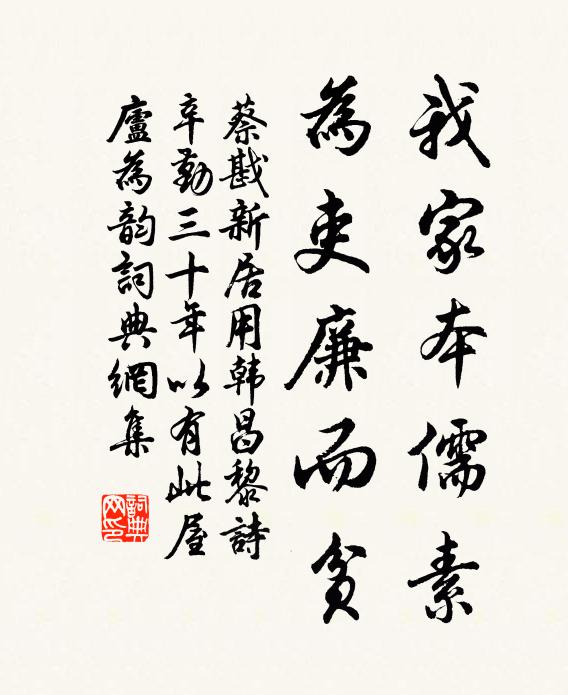 我家本儒素
為吏廉而貧
蔡戡新居用韩昌黎詩
辛勤三十年以有此屋
廬為韵詞典網集
詞典網印